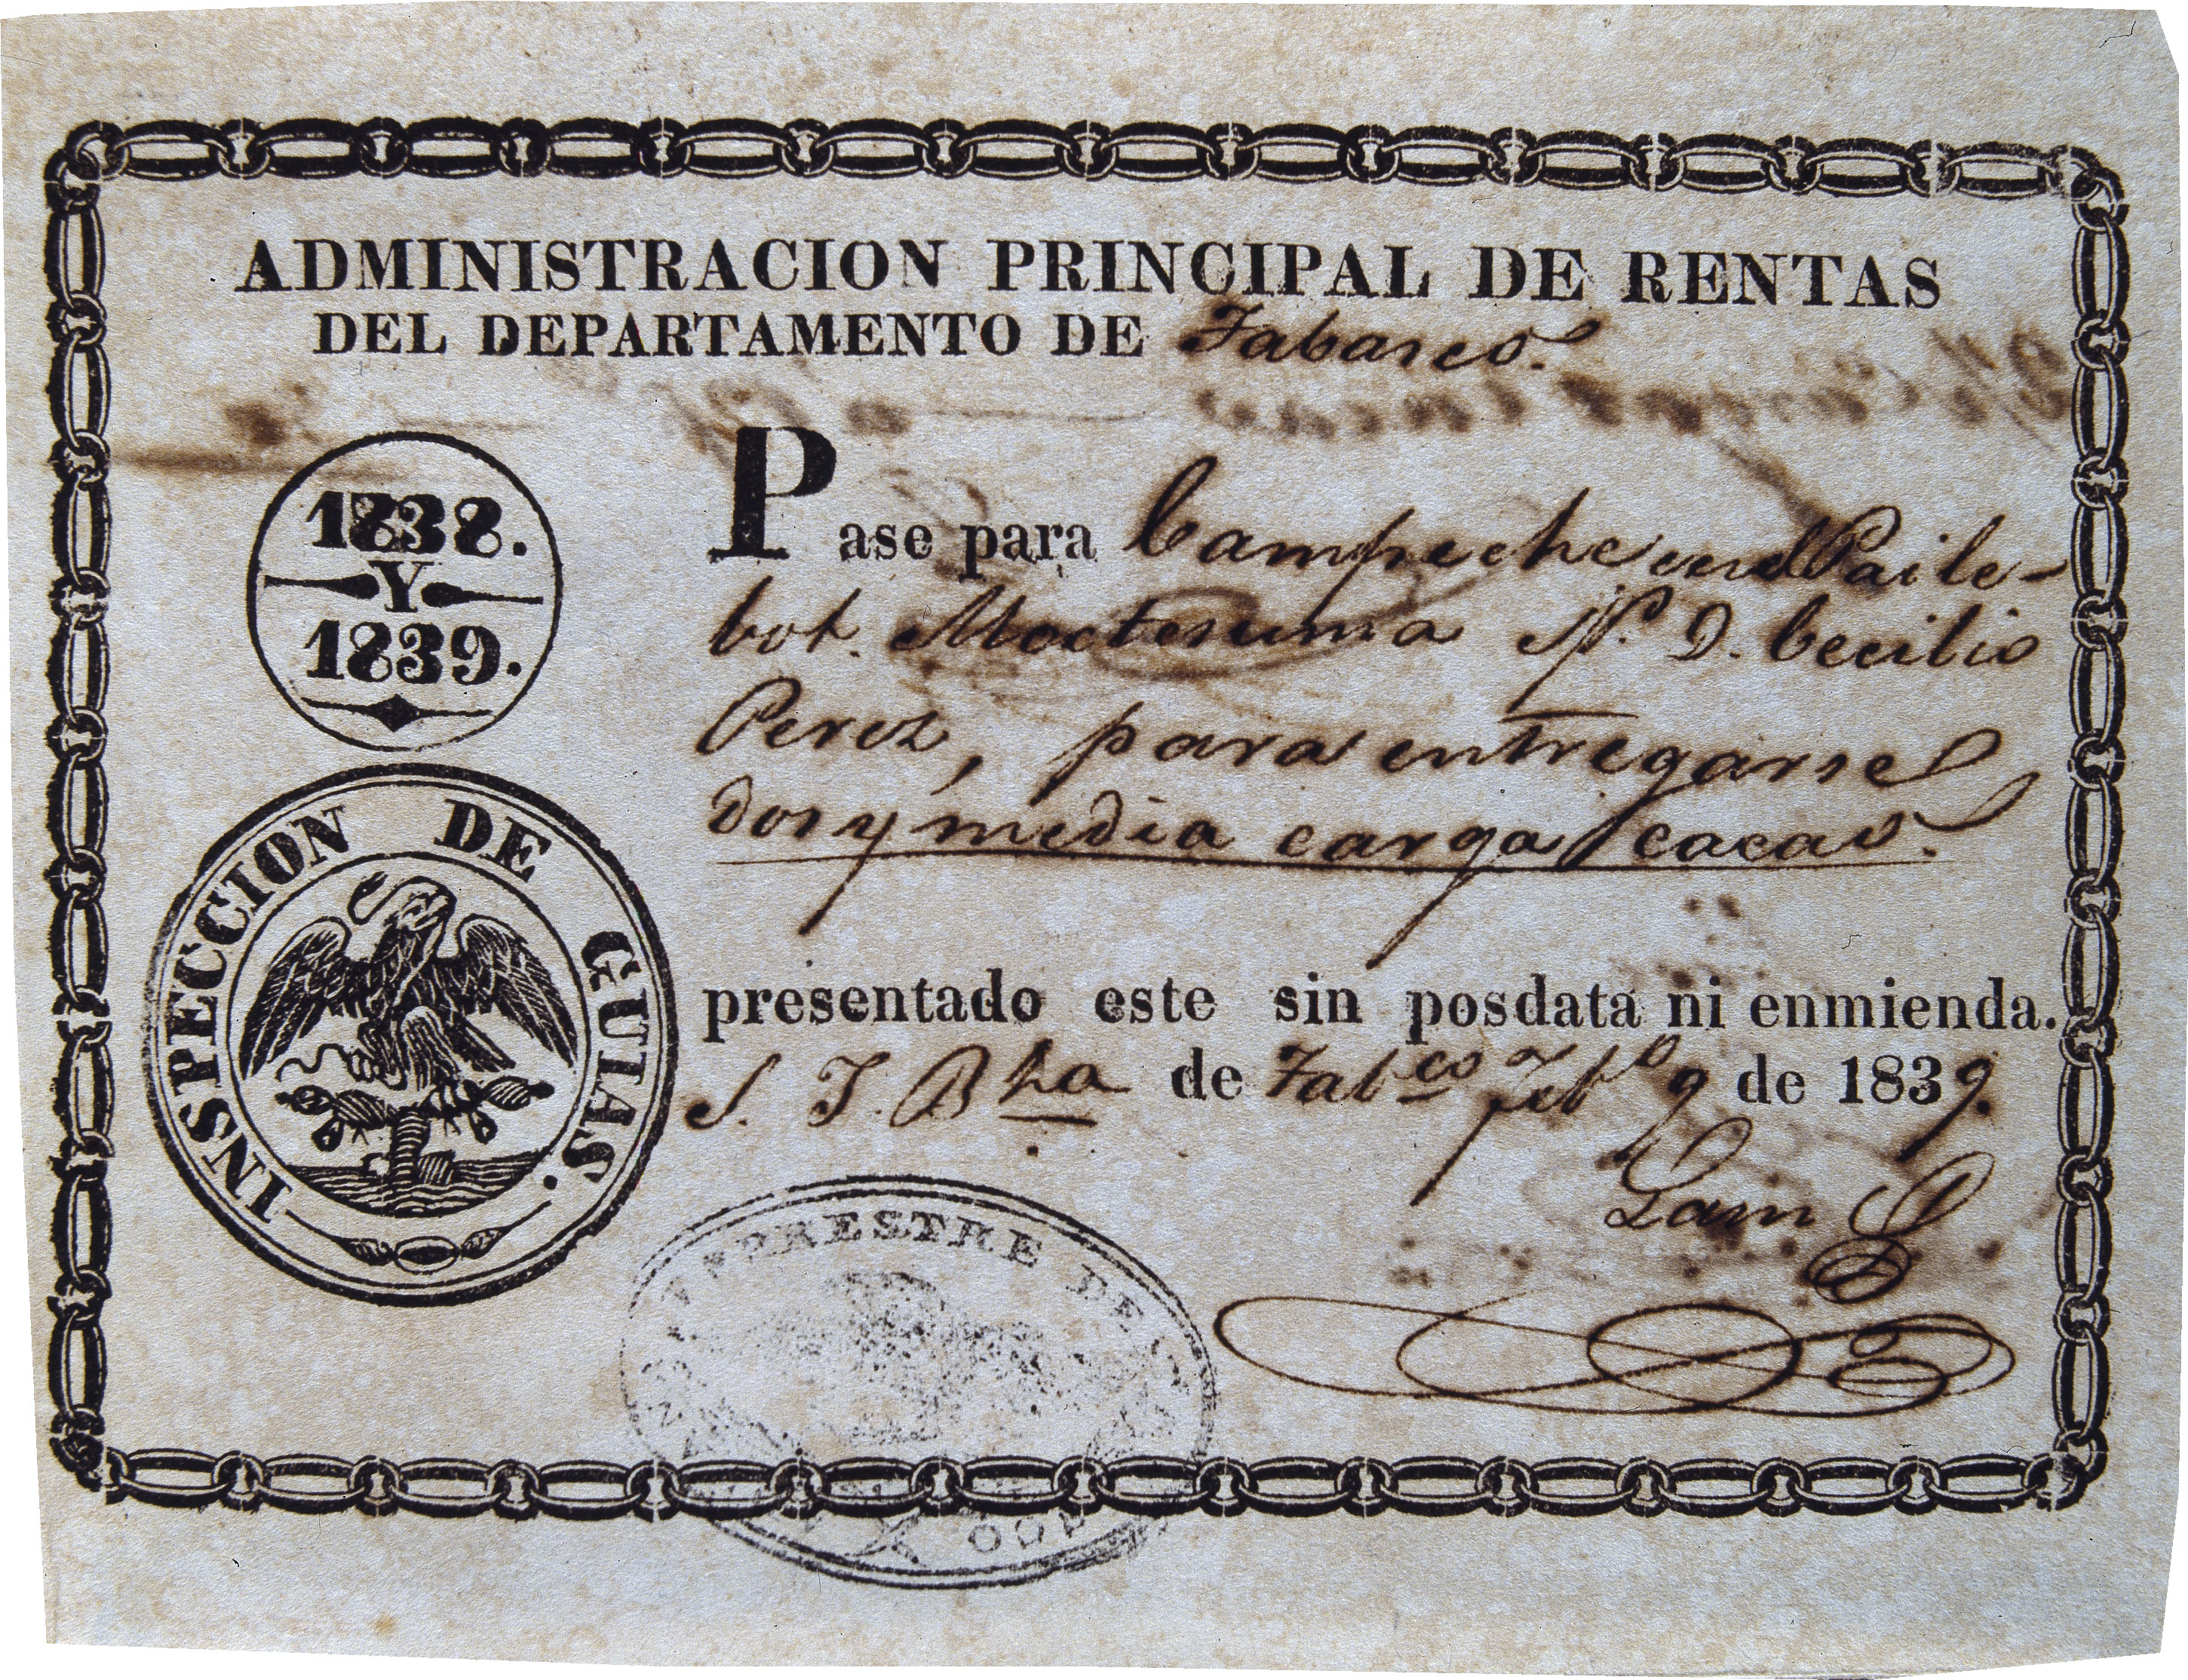 ADMINISTRACION PRINCIPAL DE RENTAS
DEL DEPARTAMENTO DE Tabasco.
1838.
Y
1839.
Pase para Campeche en el Paile-
bot. Moctesuma P. D. Cecilio
Perez, para entregarse
dos y media carga cacao.
INSPECCION DE GUIAS.
presentado este sin posdata ni enmienda.
S. J. Bta de Tabco Febo 9 de 1839.
Lam
TERRESTRE DE